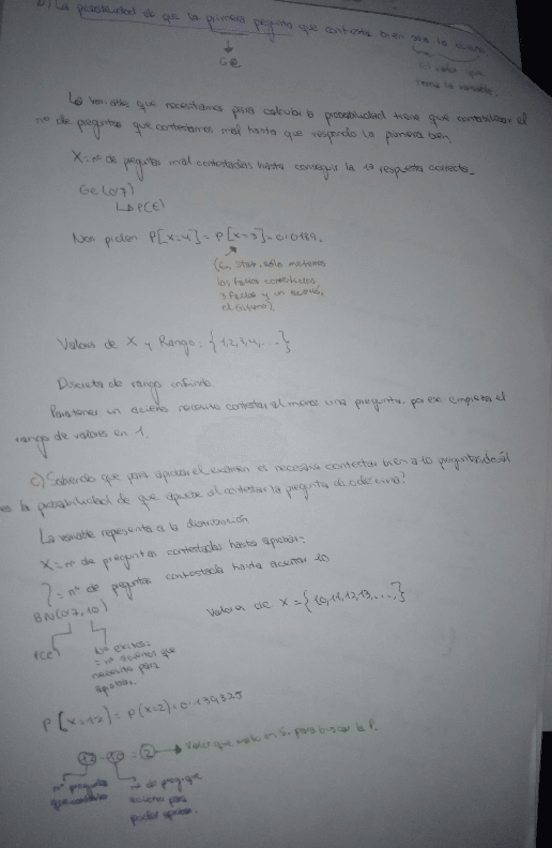 b) La probabilidad de que la primera pregunta que contesta bien sea la cuarta
Ge
El valor que
toma la variable.
La variable que necesitamos para calcular la probabilidad tiene que contabilizar el
nº de preguntas que contestamos mal hasta que respondo la primera bien.
X = nº de preguntas mal contestadas hasta conseguir la 1ª respuesta correcta.
Ge(0'7)
P(E)
Nos piden P[X=4] = P[X=3] = 0'0189.
(En Stat. sólo metemos
los fallos
3 fallos y un acierto,
el último)
Valores de X y Rango: {1,2,3,4,...}
Discreta de rango infinito.
Para tener un acierto necesito contestar al menos una pregunta, por eso empieza el
rango de valores en 1.
c) Sabiendo que para aprobar el examen es necesario contestar bien a 10 preguntas ¿cuál
es la probabilidad de que apruebe al contestar la pregunta duodécima?
La variable representa a la distribución
X = nº de preguntas contestadas hasta aprobar:
= nº de preguntas contestada hasta acertar 10
BN(0'7, 10)
Valores de X = {10,11,12,13,...}
P(E)
Nº éxitos:
= nº aciertos que
necesito para
aprobar.
P[X=12] = P(X=2) = 0'139325
12 - 10 = 2 Valor que meto en S. para buscar la P.
nº pregunta
nº de preg. que
acierto para
poder aprobar.